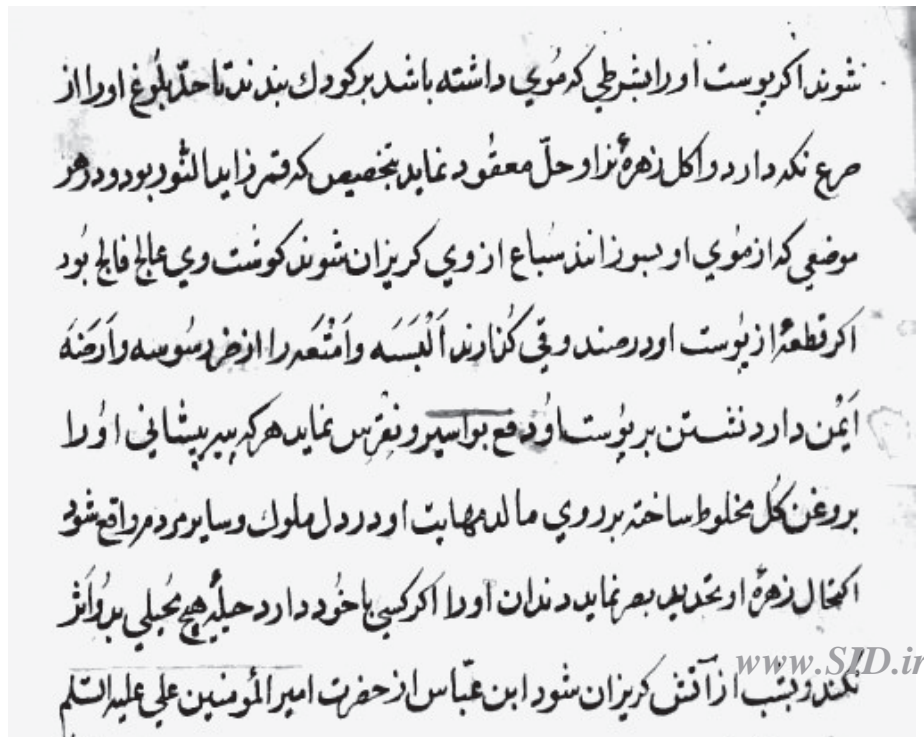 شوند اكر پوست اورا بشرطي كه مُوي داشته باشد بر كودك بندند تا حدّ بلُوغ اورا از
صرع نكه دارد واكل زهرهٔ نر او حلّ معقُود نمايد بتخصيص كه قمر زايد النور بود ودر هر
موضعي كه از مُوي او بسوزانند سُباع از وي كريزان شوند كوشت وي عالج فالج بُود
اكر قطعهٔ از پوست او در صندوقي كُذارند اَلْبَسَه واَمْتْعَه را از ضرر سُوسه واَرَضَهَ
اَيْمن دارد نشستن بر پوُست اوُ دفع بواسير ونِقْرِس نمايد هر كه پيه پيشاني اوُرا
بروغن كُل مخلوط ساخته بر روي مالد مهابت او در دل ملوك وساير مردم واقع شود
اكتحال زهرهٔ او تحديد بصر نمايد دندان اورا اكر كسي با خُود دارد حيلهٔ هيچ مُحيلي بدُو اَثر
نكند وبشب از آتش كريزان شود ابن عبّاس از حضرت امير المؤمنين علي عليه السّلم
www.SID.ir